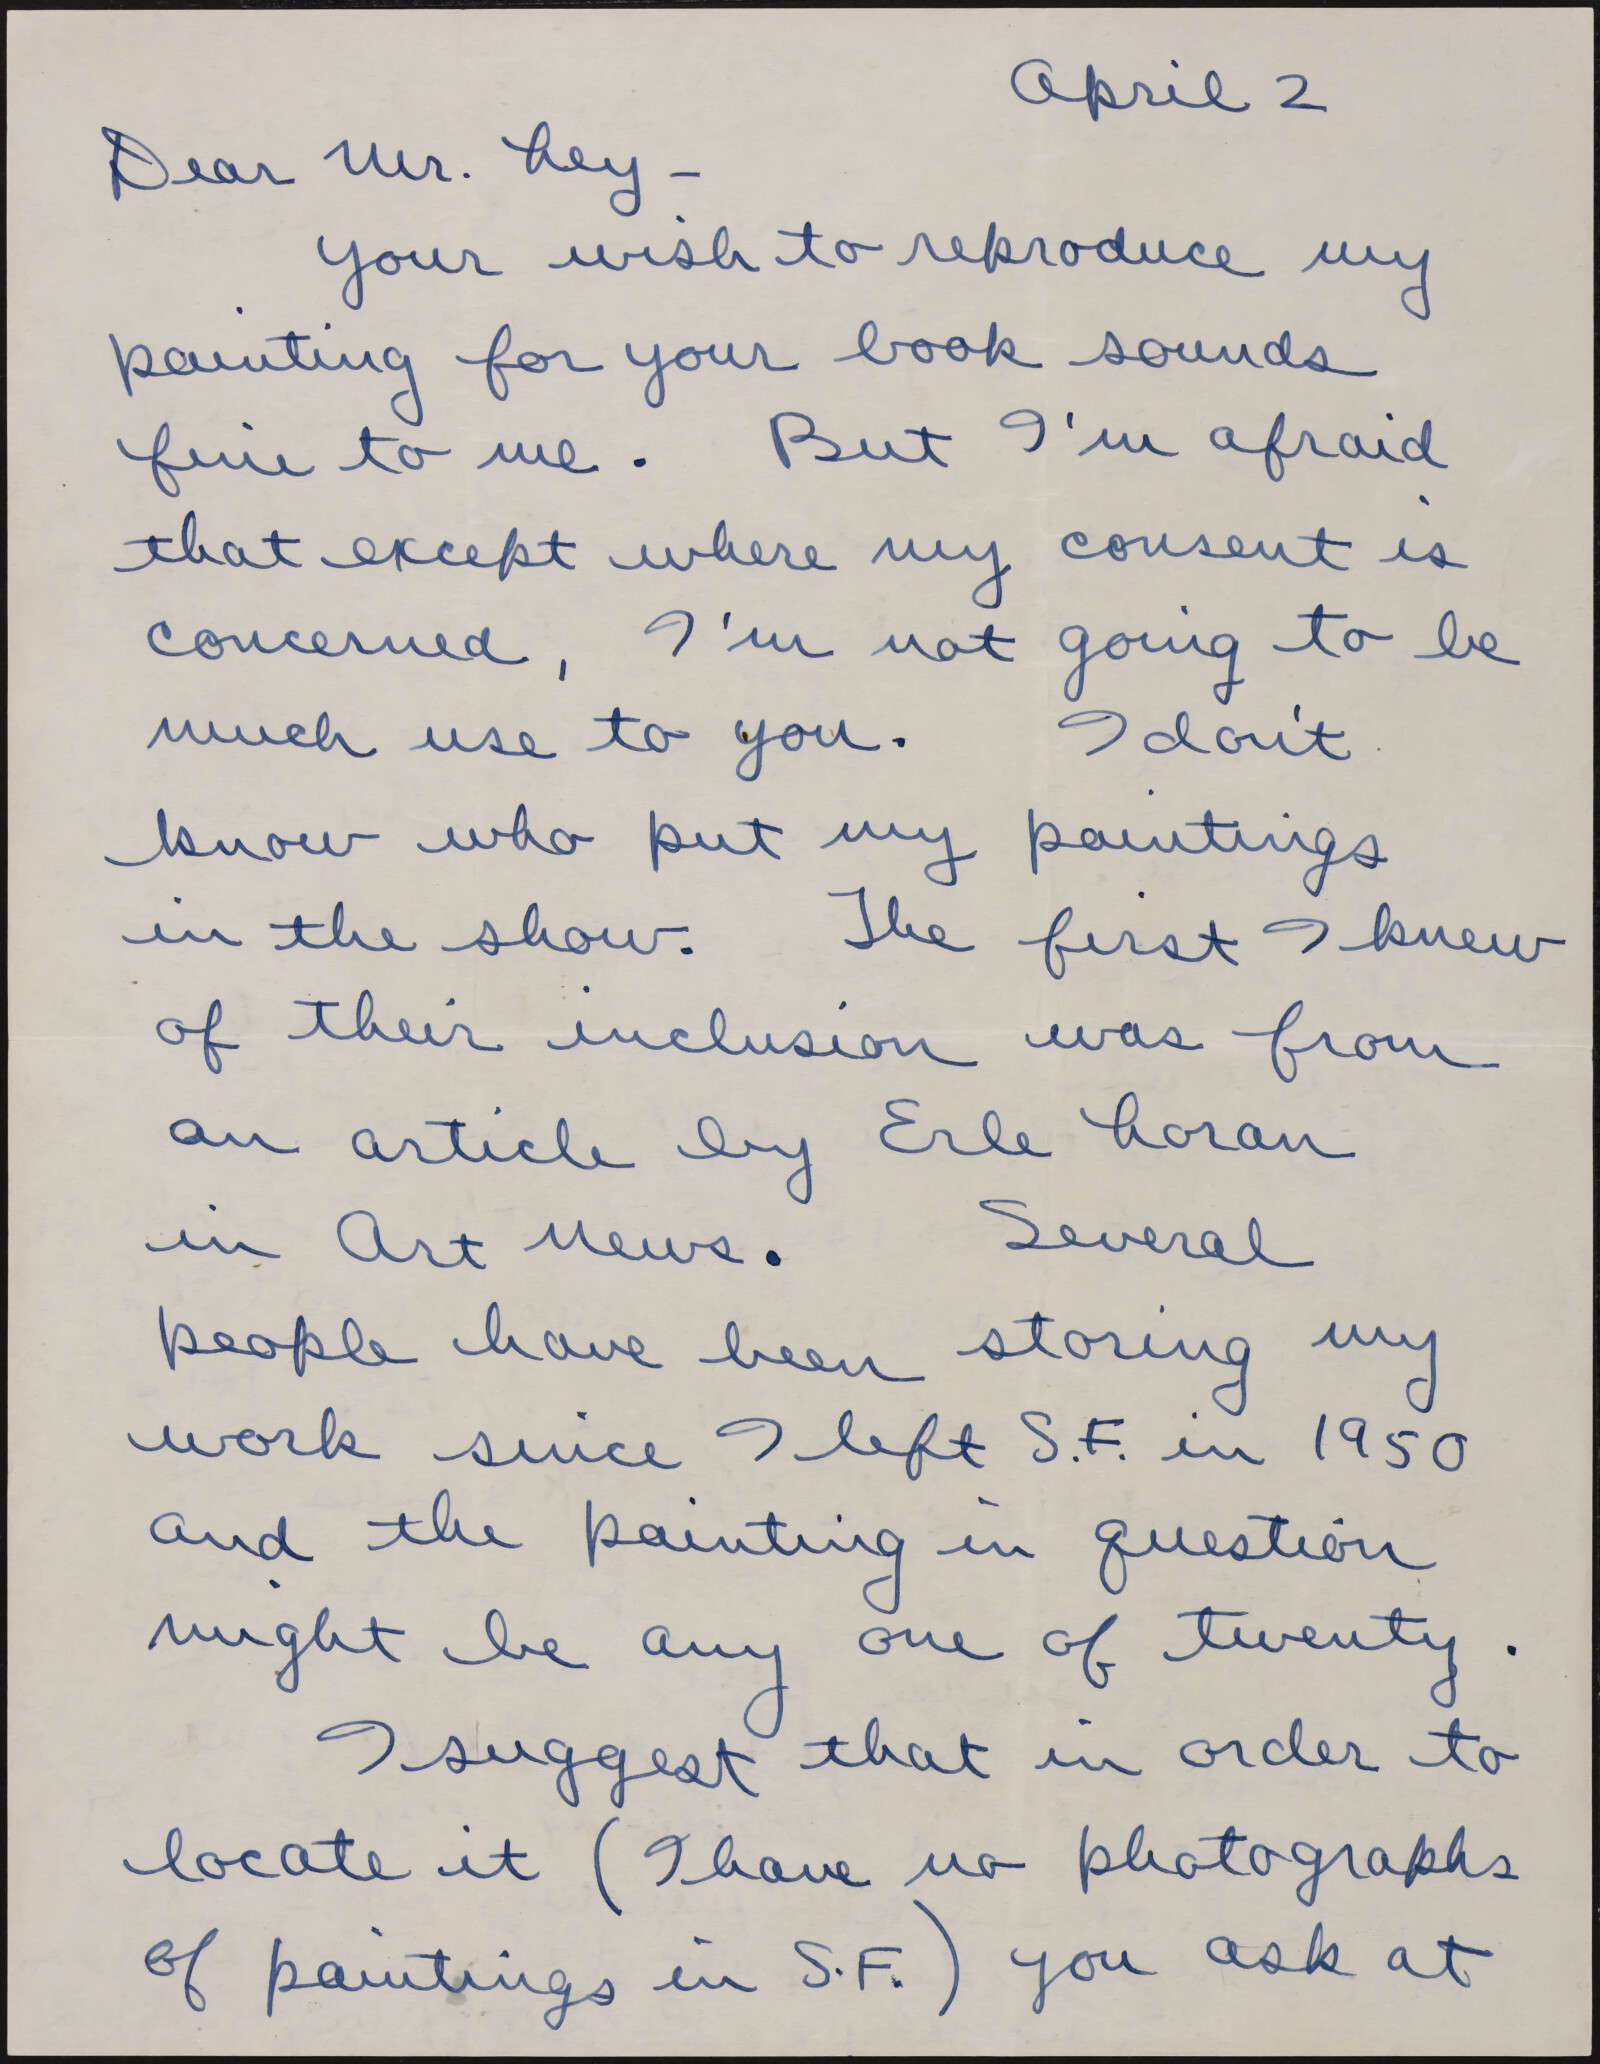 April 2
Dear Mr. Ley -
Your wish to reproduce my
painting for your book sounds
fine to me. But I'm afraid
that except where my consent is
concerned, I'm not going to be
much use to you. I don't
know who put my paintings
in the show. The first I knew
of their inclusion was from
an article by Erle Loran
in Art News. Several
people have been storing my
work since I left S.F. in 1950
and the painting in question
might be any one of twenty.
I suggest that in order to
locate it (I have no photographs
of paintings in S.F.) you ask at